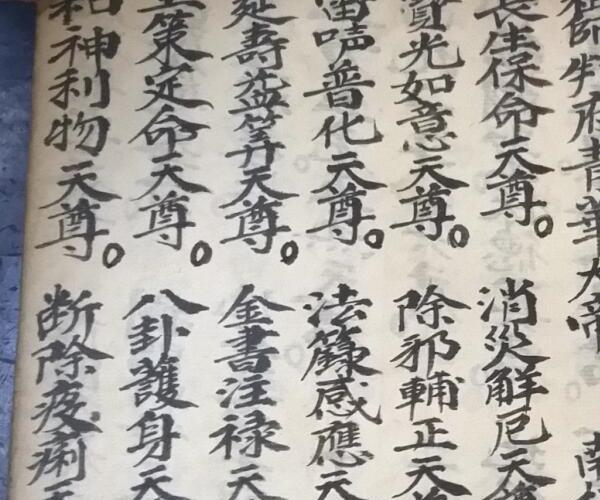 師判府青華大帝 南
長生保命天尊。消災解厄天尊
光如意天尊。除邪輔正天尊
雷声普化天尊。法籙感應天
延壽益筭天尊。金書注禄天
策定命天尊。八卦護身天
和神利物天尊。断除疫痢天